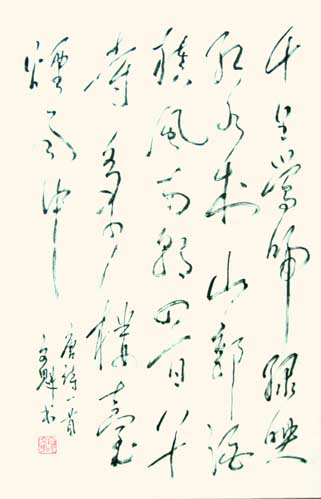 千里鶯啼綠映
红水村山郭酒
旗風南朝四百八十
寺多少樓臺
煙雨中
唐诗一首
文魁书